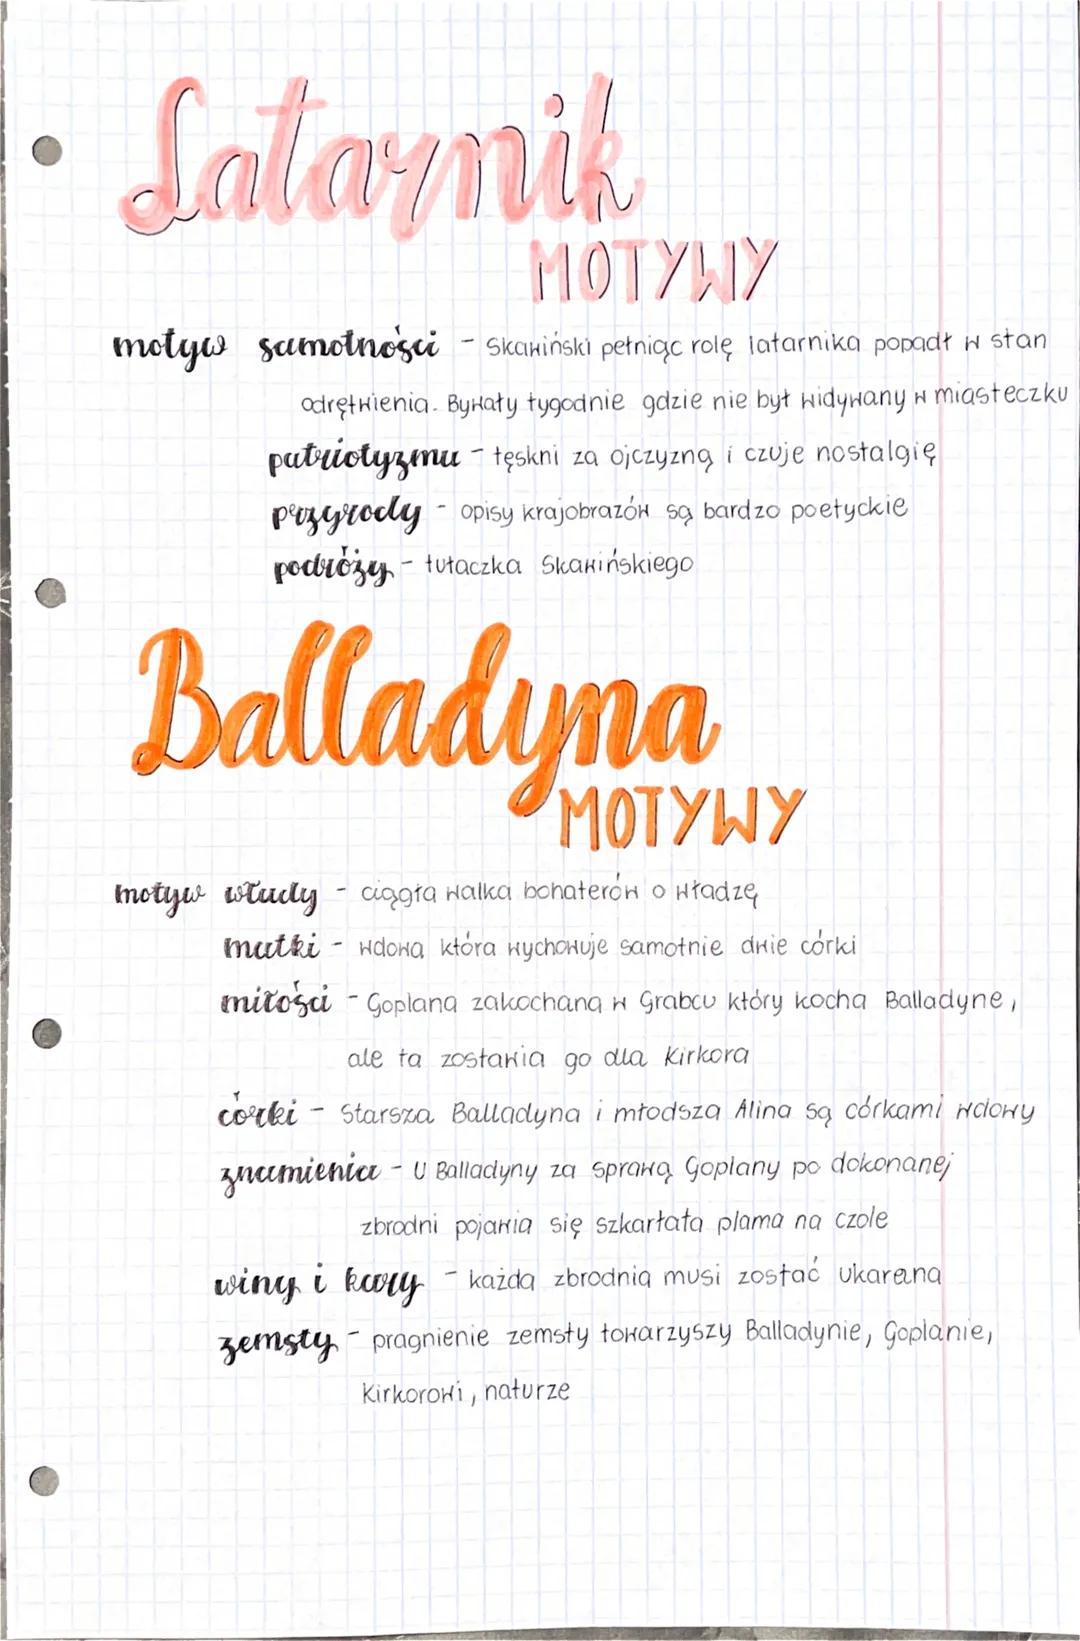 Latarnik
MOTYWY
motyw samotności - Skawiński pełniąc rolę latarnika popadł w stan
odrętwienia. Bywały tygodnie gdzie nie był widywany w miasteczku
patriotyzmu - tęskni za ojczyzną i czuje nostalgię
przyrody - opisy krajobrazów są bardzo poetyckie
podróży - tułaczka Skawińskiego
Balladyna
MOTYWY
motyw władzy - ciągła walka bohaterów o władzę
matki - wdowa która wychowuje samotnie dwie córki
miłości - Goplana zakochana w Grabcu który kocha Balladyne,
ale ta zostawia go dla Kirkora
córki - Starsza Balladyna i młodsza Alina są córkami wdowy
znamienia - U Balladyny za sprawą Goplany po dokonanej
zbrodni pojawia się szkarłata plama na czole
winy i kary - każda zbrodnia musi zostać ukarana
zemsty - pragnienie zemsty towarzyszy Balladynie, Goplanie,
Kirkorowi, naturze